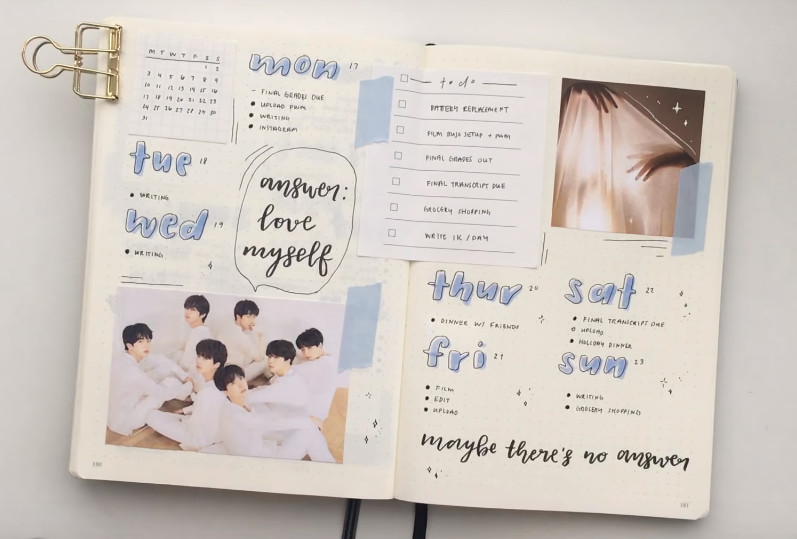 M T W T F S S
1 2
3 4 5 6 7 8 9
10 11 12 13 14 15 16
17 18 19 20 21 22 23
24 25 26 27 28 29 30
31
mon 17
- FINAL GRADES DUE
• UPLOAD PWM
• WRITING
• INSTAGRAM
tue 18
• WRITING
wed 19
• WRITING
answer:
love
myself
180
to do
BATTERY REPLACEMENT
FILM BUJO SETUP + PWM
FINAL GRADES OUT
FINAL TRANSCRIPT DUE
GROCERY SHOPPING
WRITE 1K / DAY
thur 20
• DINNER W/ FRIENDS
fri 21
• FILM
• EDIT
• UPLOAD
sat 22
• FINAL TRANSCRIPT DUE
o UPLOAD
• HOLIDAY DINNER
sun 23
• WRITING
• GROCERY SHOPPING
maybe there's no answer
181